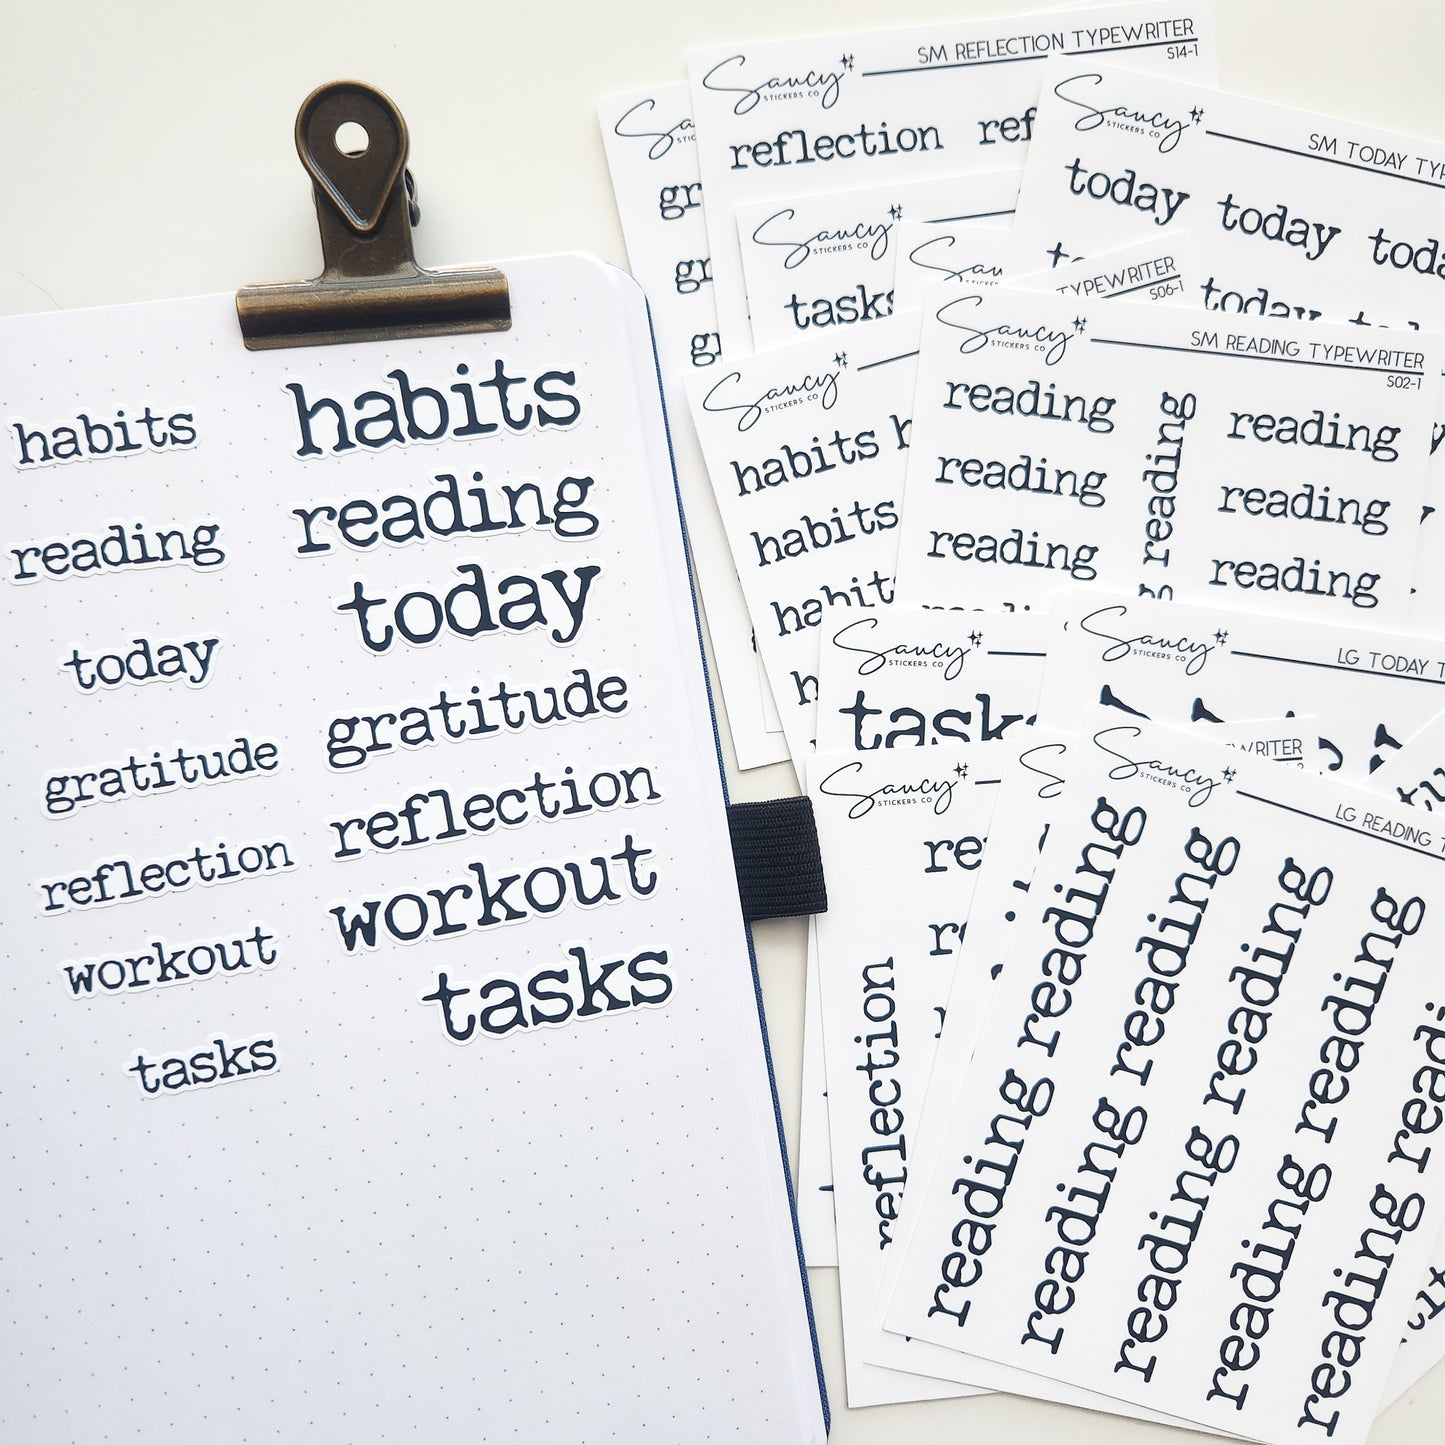 habits
habits
reading
reading
today
today
gratitude
gratitude
reflection
reflection
workout
workout
tasks
tasks
Saucy
STICKERS CO
SM REFLECTION TYPEWRITER
S14-1
reflection
Saucy
STICKERS CO
SM TODAY
today today
today
Saucy
STICKERS CO
tasks
TYPEWRITER
S06-1
Saucy
STICKERS CO
habits
habits
Saucy
STICKERS CO
SM READING TYPEWRITER
S02-1
reading reading reading
reading reading
reading reading
Saucy
STICKERS CO
tasks
Saucy
STICKERS CO
LG TODAY
Saucy
STICKERS CO
reflection
Saucy
STICKERS CO
LG READING
reading reading
reading reading
reading reading
reading reading
reading